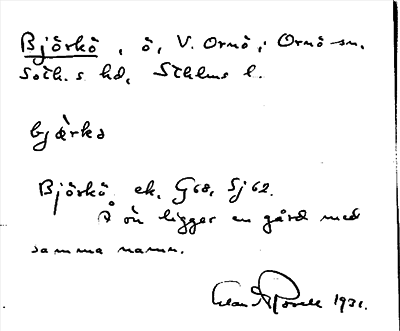 Björkö, ö, V. Ornö, Ornö sn.
Soth. s. hd, Sthlms l.
bjærkə
Björkö ek. G68, Sj62.
På ön ligger en gård med
samma namn.
1931.